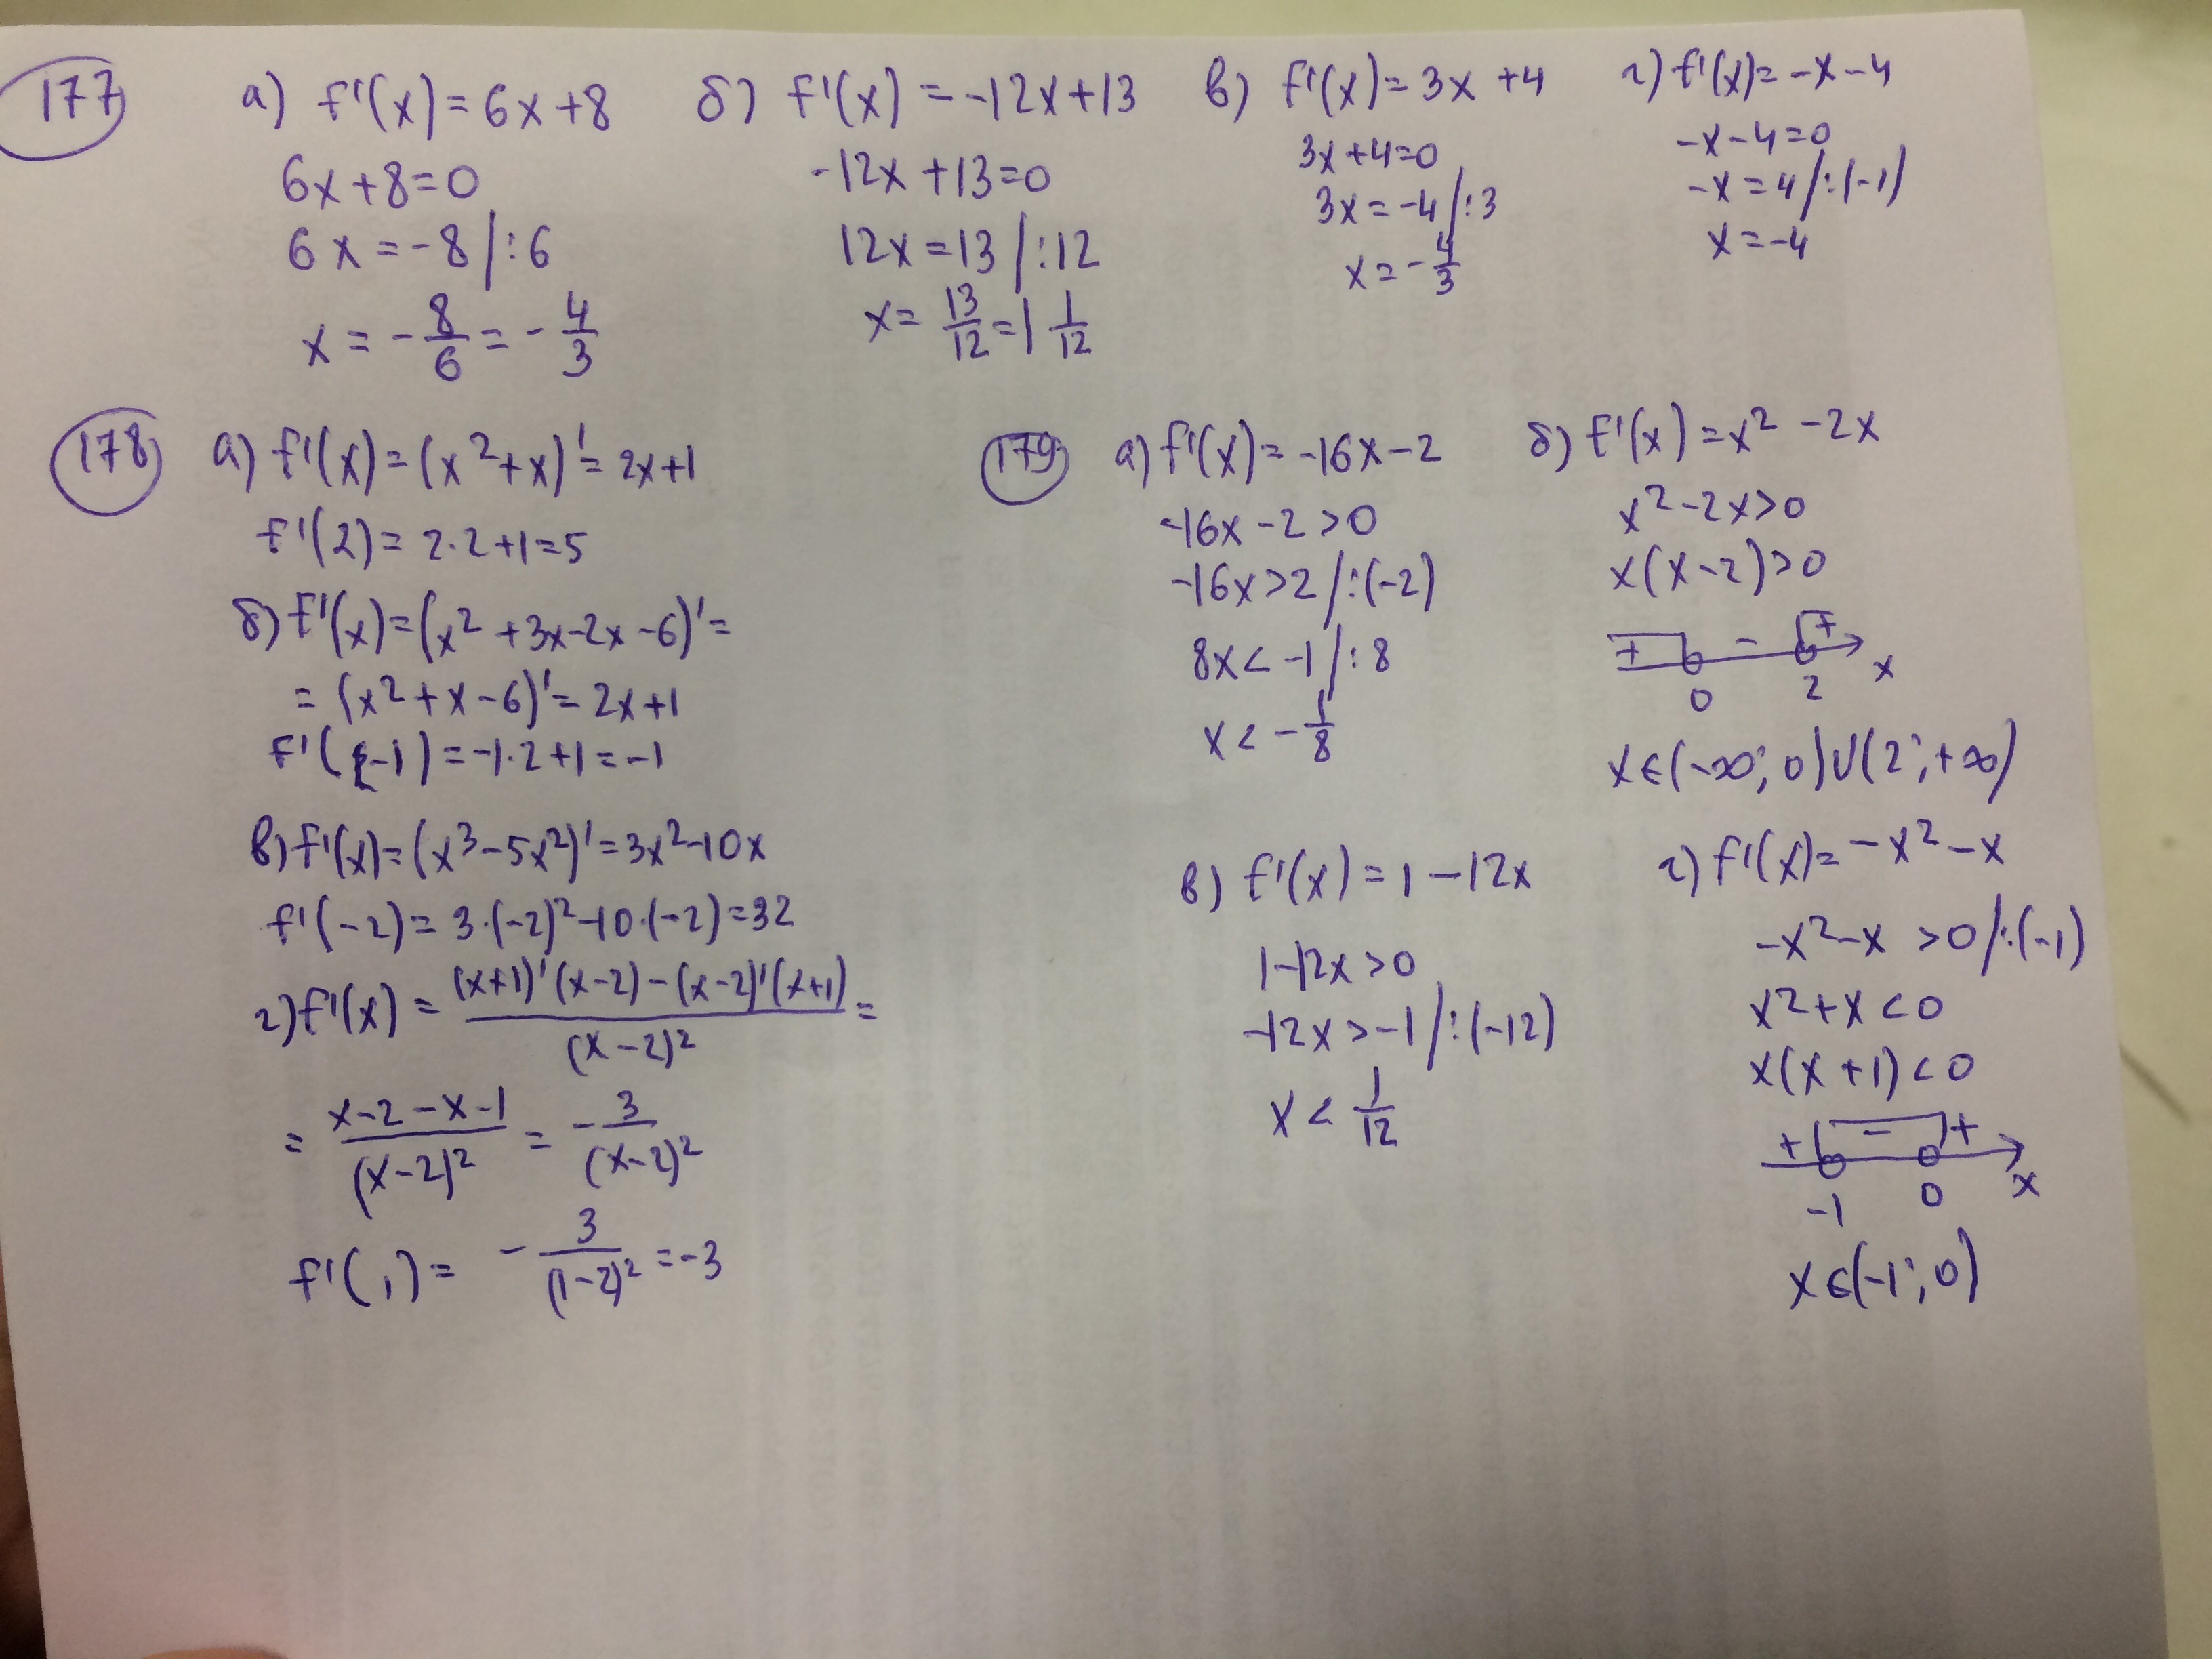 177
а) f'(x) = 6x+8
6x+8=0
6x=-8 /:6
x = -8/6 = -4/3
б) f'(x) = -12x+13
-12x+13=0
12x=13 /:12
x= 13/12 = 1 1/12
в) f'(x)= 3x +4
3x+4=0
3x=-4 /:3
x=-4/3
г) f'(x)= -x-4
-x-4=0
-x=4 /:(-1)
x=-4
178
а) f'(x)=(x²+x)'= 2x+1
f'(2)= 2·2+1=5
б) f'(x)=(x²+3x-2x-6)'=
= (x²+x-6)'= 2x+1
f'(-1)=-1·2+1=-1
в) f'(x)=(x³-5x²)'=3x²-10x
f'(-2)= 3·(-2)²-10·(-2)=32
г) f'(x) = ((x+1)'(x-2)-(x-2)'(x+1))/(x-2)² =
= (x-2-x-1)/(x-2)² = -3/(x-2)²
f'(1)= -3/(1-2)² =-3
179
а) f'(x)= -16x-2
-16x-2>0
-16x>2 /:(-2)
8x<-1 /:8
x<-1/8
б) f'(x)=x²-2x
x²-2x>0
x(x-2)>0
+ - +
0 2 x
x∈(-∞;0)∪(2;+∞)
в) f'(x)=1-12x
1-12x>0
-12x>-1 /:(-12)
x < 1/12
г) f'(x)= -x²-x
-x²-x >0 /:(-1)
x²+x<0
x(x+1)<0
+ - +
-1 0 x
x∈(-1;0)